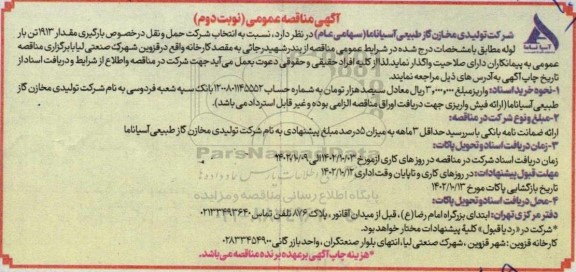 آگهی مناقصه عمومی (نوبت دوم)
شرکت تولیدی مخازن گاز طبیعی آسیاناما (سهامی عام) در نظر دارد، نسبت به انتخاب شرکت حمل و نقل در خصوص بارگیری مقدار ۱۹۱۳ تن بار
لوله مطابق با مشخصات درج شده در شرایط عمومی مناقصه از بندر شهید رجائی به مقصد کارخانه واقع در قزوین شهرک صنعتی لیا با برگزاری مناقصه
عمومی به پیمانکاران دارای صلاحیت واگذار نماید. لذا از کلیه افراد حقیقی و حقوقی دعوت بعمل می آید جهت شرکت در مناقصه و اطلاع از شرایط و دریافت اسناد از
تاریخ چاپ آگهی به آدرس های ذیل مراجعه نمایند.
۱- نحوه خرید اسناد: واریز مبلغ ۳,۰۰۰,۰۰۰ ریال معادل سیصد هزار تومان به شماره حساب ۱۲۰۰۸۰۱۱۴۵۵۵۲ بانک سپه شعبه فردوسی به نام شرکت تولیدی مخازن گاز
طبیعی آسیاناما (ارائه فیش واریزی جهت دریافت اوراق مناقصه الزامی بوده و غیر قابل استرداد می باشد).
۲- مبلغ و نوع شرکت در مناقصه:
ارائه ضمانت نامه بانکی با سررسید حداقل ۳ ماهه به میزان ۵ درصد مبلغ پیشنهادی به نام شرکت تولیدی مخازن گاز طبیعی آسیاناما
۳- زمان دریافت اسناد و تحویل پاکات:
زمان دریافت اسناد شرکت در مناقصه در روزهای کاری از مورخ ۱۴۰۲/۱۰/۰۳ الی ۱۴۰۲/۱۰/۰۹
مهلت قبول پیشنهادات: در روزهای کاری و تا پایان وقت اداری ۱۴۰۲/۱۰/۱۲
تاریخ بازگشایی پاکات مورخ ۱۴۰۲/۱۰/۱۳
۴- محل دریافت اسناد و تحویل پاکات:
دفتر مرکزی تهران: ابتدای بزرگراه امام رضا (ع)، قبل از میدان آقانور، پلاک ۸۷۶ تلفن تماس ۰۲۱۳۳۴۹۳۶۴۰
*شرکت در «رد یا قبول» کلیۀ پیشنهادات مختار خواهد بود.
کارخانه قزوین: شهر قزوین، شهرک صنعتی لیا، انتهای بلوار صنعتگران، واحد بازرگانی ۰۲۸۳۳۴۵۴۹۰۰
*هزینه چاپ آگهی بر عهده برنده مناقصه می باشد.*
آسیا نـاما
ParsNamadData
پایگاه اطلاع رسانی مناقصه و مزایده